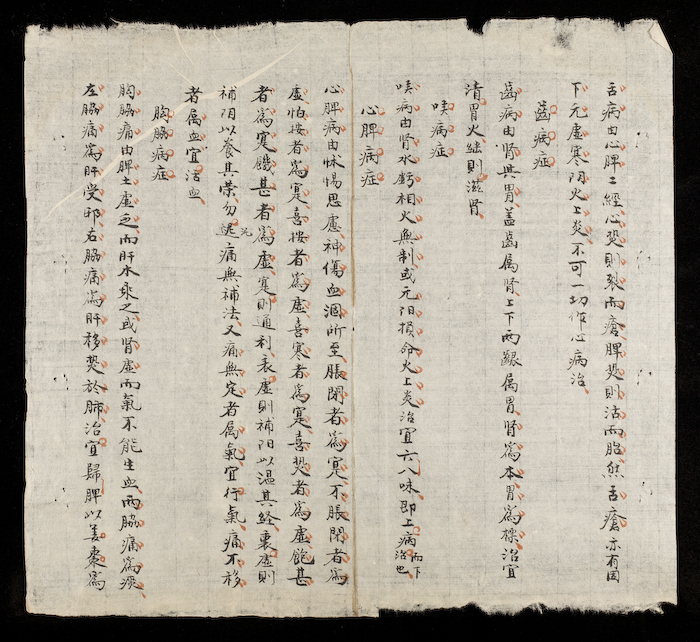 舌病由心脾二經心熱則裂而瘡脾熱則沽而胎然舌瘡亦有因
下元虛寒陽火上炎不可一切作心病治
齒病症
齒病由肾與胃盖齒属肾上下兩齦属胃肾為本胃為標治宜
清胃火継則滋肾
咳病症
咳病由肾水虧相火無制或元阳損命火上炎治宜六八味即上病而下治也
心脾病症
心脾病由怵惕思慮神傷血涸所至脹閉者為寔不脹閉者為
虛怕按者為寔喜按者為虛喜寒者為寔喜熱者為虛飽甚
者為寔饑甚者為虛寔則通利表虛則補阳以温其経裏虛則
補阴以養其荣勿泥痛無補法又痛無定者属氣宜行氣痛不移
者属血宜活血
胸脇病症
胸脇痛由脾土虛乏而肝木乘之或肾虛而氣不能生血兩脇痛為痰
左脇痛為肝受邪右脇痛為肝移熱於肺治宜歸脾以姜棗為